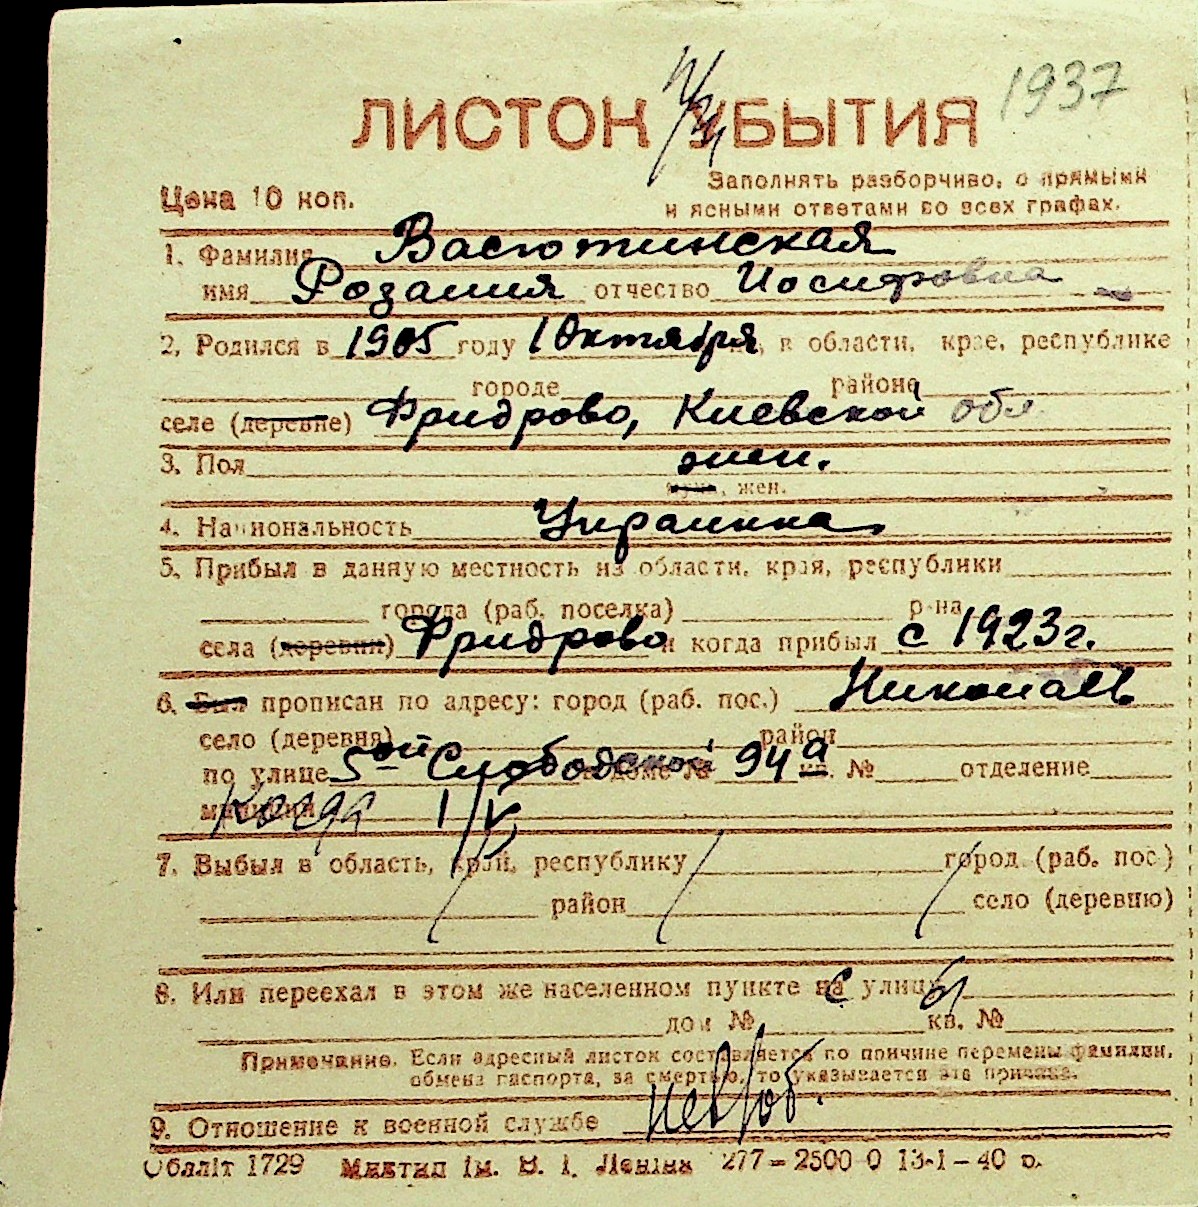 1937
ЛИСТОК УБЫТИЯ
Цена 10 коп.
Заполнять разборчиво, с прямыми
и ясными ответами во всех графах.
1. Фамилия Васютинская
имя Розалия отчество Иосифовна
2. Родился в 1905 году 1 Октября, в области, крае, республике
городе района
селе (деревне) Фридрово, Киевской обл
3. Пол жен.
муж., жен.
4. Национальность Украинка
5. Прибыл в данную местность из области, края, республики
города (раб. поселка) р-на
села (деревни) Фридрово и когда прибыл с 1923 г.
6. Был прописан по адресу: город (раб. пос.) Николаев
село (деревня) район
по улице 5ой Слободской дом № 94а кв. № отделение
милиции
7. Выбыл в область, край, республику город (раб. пос.)
район село (деревню)
8. Или переехал в этом же населенном пункте на улицу
дом № кв. №
Примечание. Если адресный листок составляется по причине перемены фамилии,
обмена паспорта, за смертью, то указывается эта причина.
9. Отношение к военной службе
Обліт 1729 ім. В. І. Леніна 277—2500 0 13-1—40 р.